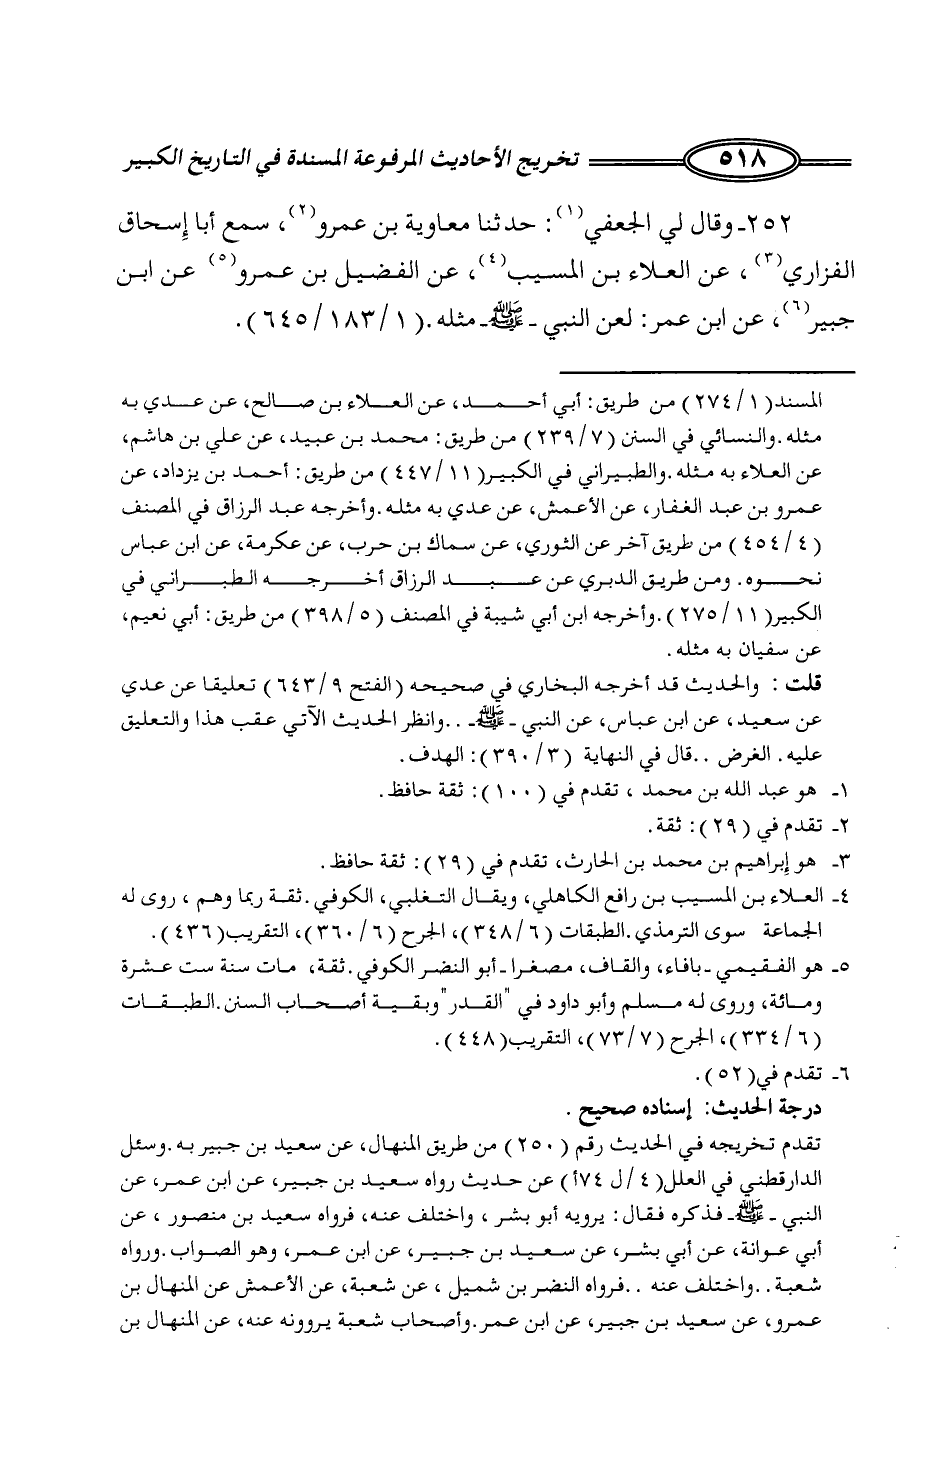 ٥١٨ تخريج الأحاديث المرفوعة المسندة في التاريخ الكبير
٢٥٢ـ وقال لي الجعفي(١): حدثنا معاوية بن عمرو(٢)، سمع أبا إسحاق
الفزاري(٣) ، عن العلاء بن المسيب(٤)، عن الفضيل بن عمرو(٥) عن ابن
جبير(٦)، عن ابن عمر: لعن النبي ـ ﷺ ـ مثله.(١ /١٨٣ /٦٤٥).
المسند( ١/ ٢٧٤) من طريق: أبي أحمد، عن العلاء بن صالح، عن عدي به
مثله.والنسائي في السنن (٧ /٢٣٩) من طريق: محمد بن عبيد، عن علي بن هاشم،
عن العلاء به مثله.والطبيراني في الكبير( ١١ /٤٤٧) من طريق: أحمد بن يزداد، عن
عمرو بن عبد الغفار، عن الأعمش، عن عدي به مثله.وأخرجه عبد الرزاق في المصنف
(٤ /٤٥٤) من طريق آخر عن الثوري، عن سماك بن حرب، عن عكرمة، عن ابن عباس
نحوه. ومن طريق الدبري عن عبد الرزاق أخرجه الطبراني في
الكبير( ١١ /٢٧٥).وأخرجه ابن أبي شيبة في المصنف (٥ /٣٩٨) من طريق: أبي نعيم،
عن سفيان به مثله.
قلت : والحديث قد أخرجه البخاري في صحيحه (الفتح ٩ /٦٤٣) تعليقا عن عدي
عن سعيد، عن ابن عباس، عن النبي ـ ﷺ ـ ..وانظر الحديث الآتي عقب هذا والتعليق
عليه. الغرض ..قال في النهاية (٣ /٣٩٠): الهدف.
١ـ هو عبد الله بن محمد ، تقدم في (١٠٠): ثقة حافظ.
٢ـ تقدم في (٢٩): ثقة.
٣ـ هو إبراهيم بن محمد بن الحارث، تقدم في (٢٩): ثقة حافظ.
٤ـ العلاء بن المسيب بن رافع الكاهلي، ويقال التغلبي، الكوفي.ثقة ربما وهم ، روى له
الجماعة سوى الترمذي.الطبقات (٦ /٣٤٨)، الجرح (٦ /٣٦٠)، التقريب(٤٣٦).
٥ـ هو الفقيمي ـ بافاء، والقاف، مصغرا ـ أبو النضر الكوفي.ثقة، مات سنة ست عشرة
ومائة، وروى له مسلم وأبو داود في "القدر" وبقية أصحاب السنن.الطبقات
(٦ /٣٣٤)، الجرح (٧ /٧٣)، التقريب(٤٤٨).
٦ـ تقدم في(٥٢).
درجة الحديث: إسناده صحيح .
تقدم تخريجه في الحديث رقم (٢٥٠) من طريق المنهال، عن سعيد بن جبير به.وسئل
الدارقطني في العلل(٤ /ل ٧٤أ) عن حديث رواه سعيد بن جبير، عن ابن عمر، عن
النبي ـ ﷺ ـ فذكره فقال: يرويه أبو بشر ، واختلف عنه، فرواه سعيد بن منصور ، عن
أبي عوانة، عن أبي بشر، عن سعيد بن جبير، عن ابن عمر، وهو الصواب.ورواه
شعبة..واختلف عنه ..فرواه النضر بن شميل ، عن شعبة، عن الأعمش عن المنهال بن
عمرو، عن سعيد بن جبير، عن ابن عمر.وأصحاب شعبة يروونه عنه، عن المنهال بن